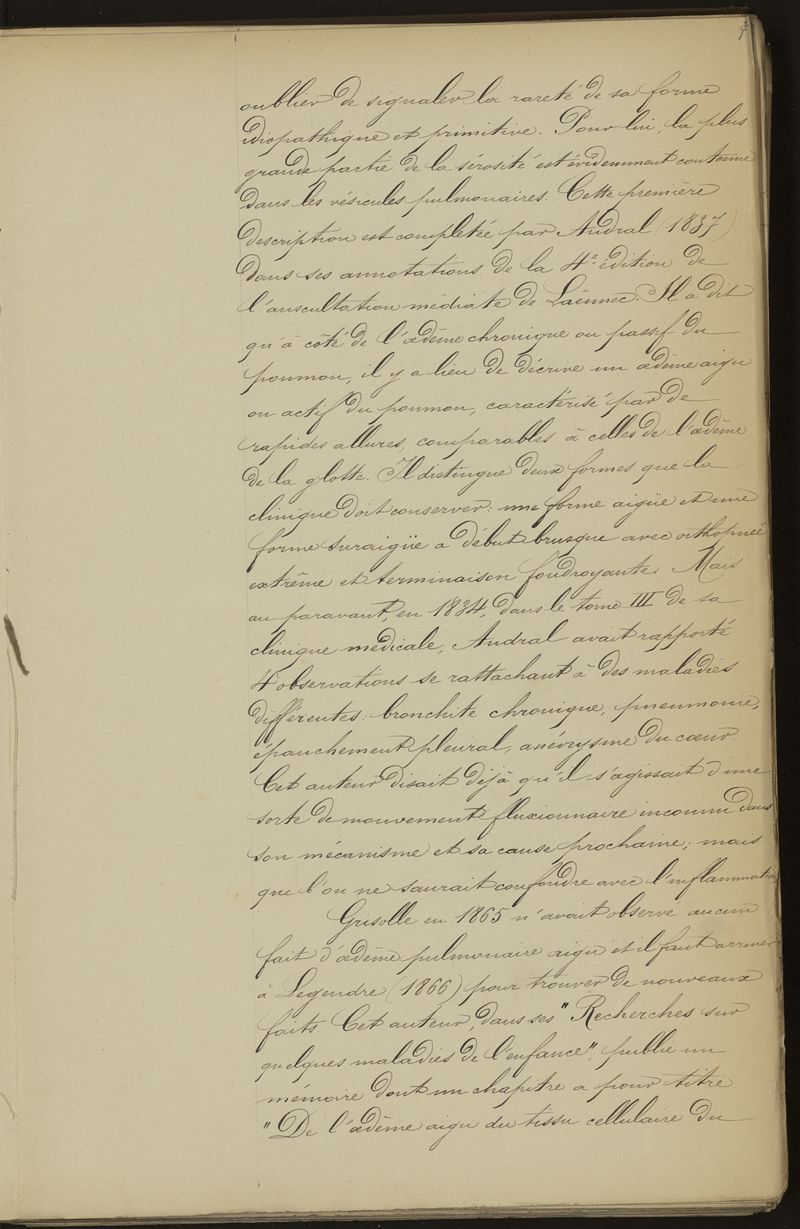 oublier de signaler la rareté de sa forme
idiopathique et primitive. Pour lui, la plus
grande partie de la sérosité est évidemment contenue
dans les vésicules pulmonaires. Cette première
description est complétée par Andral (1837)
dans ses annotations de la 4e édition de
l'auscultation médiate de Laënnec. Il a dit
qu'à côté de l'œdème chronique ou passif du
poumon, il y a lieu de décrire un œdème aigu
ou actif du poumon, caractérisé par de
rapides allures, comparables à celles de l'œdème
de la glotte. Il distingue deux formes que la
clinique doit conserver: une forme aigüe et une
forme suraigüe a début brusque avec orthopnée
extrême et terminaison foudroyante. Mais
au paravant, en 1834, dans le tome III de sa
clinique médicale, Andral avait rapporté
4 observations se rattachant à des maladies
différentes: bronchite chronique, pneumonie,
épanchement pleural, anévrysme du cœur.
Cet auteur disait déjà qu'il s'agissait d'une
sorte de mouvement fluxionnaire inconnu dans
son mécanisme et sa cause prochaine; mais
que l'on ne saurait confondre avec l'inflammation
Grisolle en 1865 n'avait observé aucun
fait d'œdème pulmonaire aigu et il faut arriver
à Legendre (1866) pour trouver de nouveaux
faits Cet auteur, dans ses "Recherches sur
quelques maladies de l'enfance", publie un
mémoire dont un chapitre a pour titre
"De l'œdème aigu du tissu cellulaire du